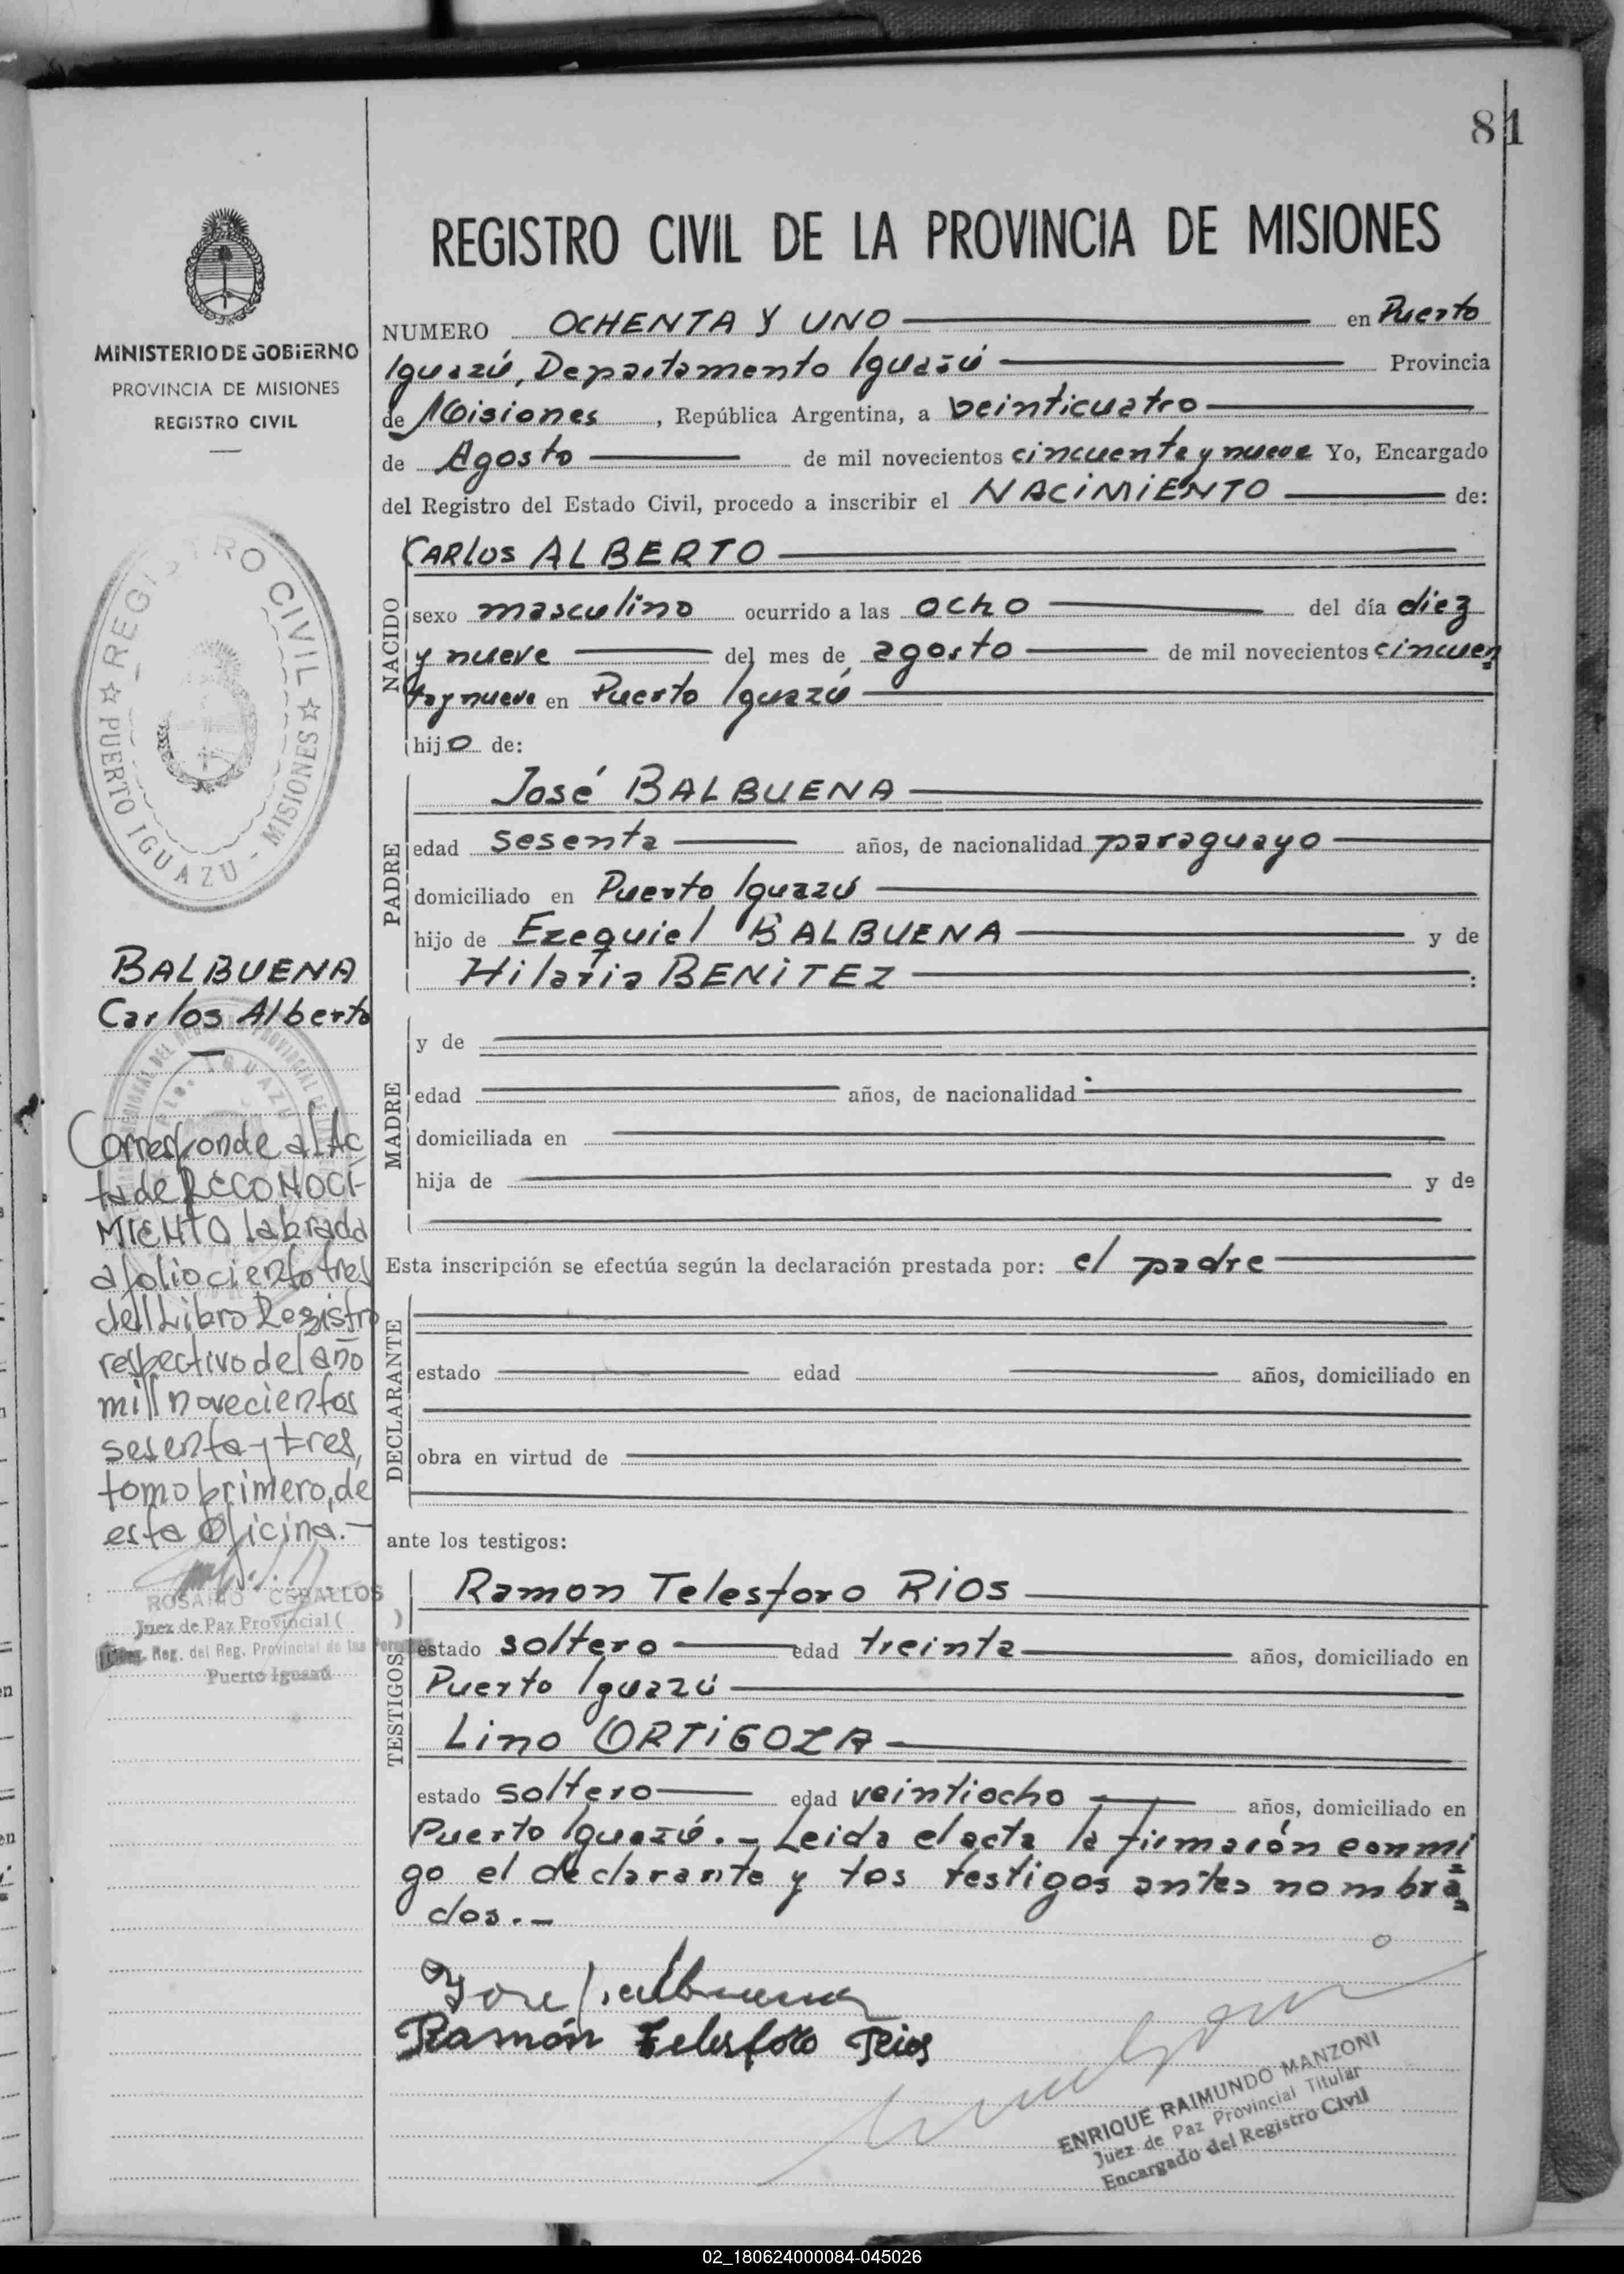 81
REGISTRO CIVIL DE LA PROVINCIA DE MISIONES
MINISTERIO DE GOBIERNO
PROVINCIA DE MISIONES
REGISTRO CIVIL
NUMERO OCHENTA Y UNO en Puerto
Iguazú, Departamento Iguazú Provincia
de Misiones, República Argentina, a veinticuatro
de Agosto de mil novecientos cincuenta y nueve Yo, Encargado
del Registro del Estado Civil, procedo a inscribir el NACIMIENTO de:
NACIDO
CARLOS ALBERTO
sexo masculino ocurrido a las ocho del día diez
y nueve del mes de agosto de mil novecientos cincuen
ta y nueve en Puerto Iguazú
hijo de:
PADRE
José BALBUENA
edad sesenta años, de nacionalidad paraguayo
domiciliado en Puerto Iguazú
hijo de Ezequiel BALBUENA y de
Hilaria BENITEZ :
MADRE
y de
edad años, de nacionalidad
domiciliada en
hija de y de
Esta inscripción se efectúa según la declaración prestada por: el padre
DECLARANTE
estado edad años, domiciliado en
obra en virtud de
ante los testigos:
TESTIGOS
Ramon Telesforo RIOS
estado soltero edad treinta años, domiciliado en
Puerto Iguazú
Lino ORTIGOZA
estado soltero edad veintiocho años, domiciliado en
Puerto Iguazú.- Leida el acta la firmarón conmi
go el declarante y los testigos antes nombra
dos.-
Jose Balbuena
Ramón Telesforo Rios
ENRIQUE RAIMUNDO MANZONI
Juez de Paz Provincial Titular
Encargado del Registro Civil
REGISTRO CIVIL
PUERTO IGUAZU - MISIONES
BALBUENA
Carlos Alberto
Corresponde al Ac
ta de RECONOCI-
MIENTO labrada
a folio ciento tres
del Libro Registro
respectivo del año
mil novecientos
sesenta y tres,
tomo primero, de
esta Oficina.-
ROSARIO CEBALLOS
Juez de Paz Provincial
Reg. del Reg. Provincial de las Personas
Puerto Iguazú
02_180624000084-045026